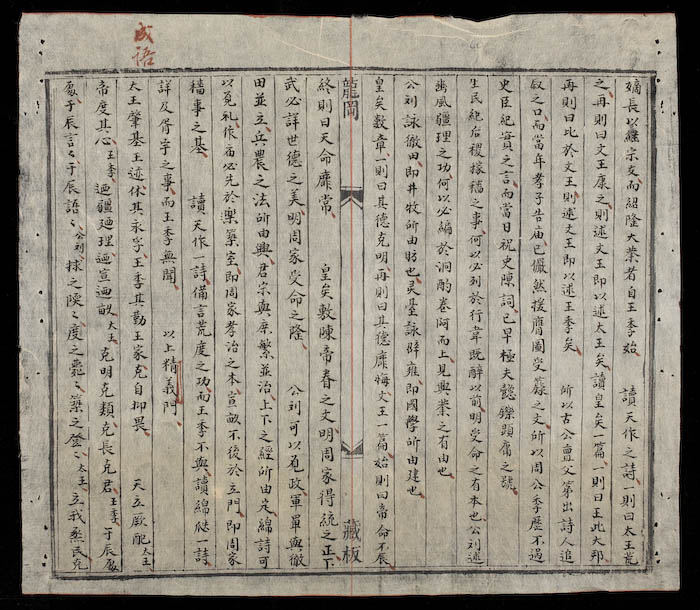 成语
嫡長以繼宗支而紹隆大業者自王季始　讀天作之詩則曰太王荒
之再則曰文王康之則述文王即以述太王矣讀皇矣一篇一則曰王此大邦
再則曰比於文王則述文王即以述王季矣　所以古公亶父第出詩人追
叙之口而當年孝子告庙已儼然援膺圖受籙之文所以周公季歷不過
史臣紀實之言而當日祝史陳詞已早極夫懿鑠顕庸之號
生民紀后稷稼穡之事何以必列於行葦既醉以前明受命之有本也公刘述
豳風疆理之功何以必編於泂酌卷阿而上見興業之有由也
公刘詠徹田即井牧所由昉也灵臺詠辟雍即國學所由建也
皇矣数章一則曰其德克明再則曰其德靡悔文王一篇始則曰帝命不辰
龍岡　藏板
終則曰天命靡常　皇矣敷陳帝眷之文明周家得統之正下
武必詳世德之美明周家受命之隆　公刘可以覓政軍單與徹
田並立兵農之法所由興君宗與庶繁並治上下之經所由定綿詩可
以覓礼作庙必先於築室即周家孝治之本宣畝不後於立門即周家
穡事之基　讀天作一詩備言荒度之功而王季不與讀綿一詩
詳及胥宇之事而王季無聞　以上精義門
太王肇基王迹休其永孚王季其勤王家克自抑畏　天立厥配太王
帝度其心王季迺疆廼理迺宣迺畝太王克明克類克長克君王季于辰處
處于辰言々于辰語々公刘捄之陾々度之薨々築之登々太王立我烝民克